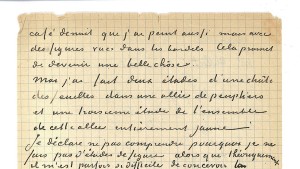 café dennuit que j'ai peint aussi mais avec
des figures vues dans les bordels Cela promet
de devenir une belle chôse.
Moi j'ai fait deux études d'une chûte
des feuilles dans une allée de peupliers
et une troisieme étude de l'ensemble
de cette allée entierement jaune
Je déclare ne pas comprendre pourquoi je ne
fais pas d'études de figure alors que théoriquement
il m'est parfois si difficile de concevoir la